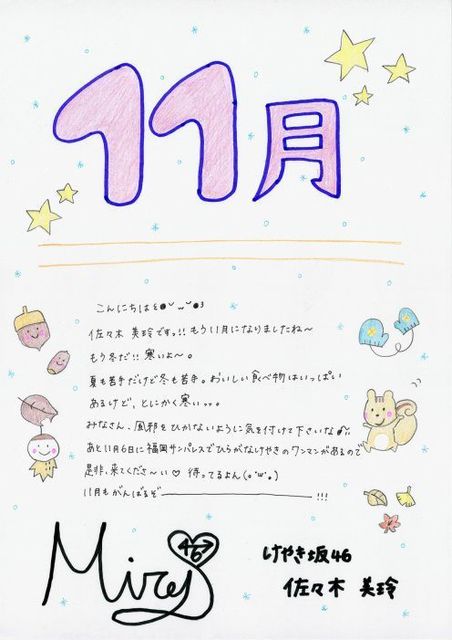 11月
こんにちは
佐々木 美玲ですッ!! もう11月になりましたね〜
もう冬だ!! 寒いよ〜。
夏も苦手だけど冬も苦手。おいしい食べ物はいっぱい
あるけど、とにかく寒いっ。
みなさん、風邪をひかないように気を付けて下さいな
あと11月6日に福岡サンパレスでひらがなけやきのワンマンがあるので
是非、来てくださ〜い♡ 待ってるよん(о´ω`о)
11月もがんばるぞ――――――!!!
Mirei
46
けやき坂46
佐々木 美玲